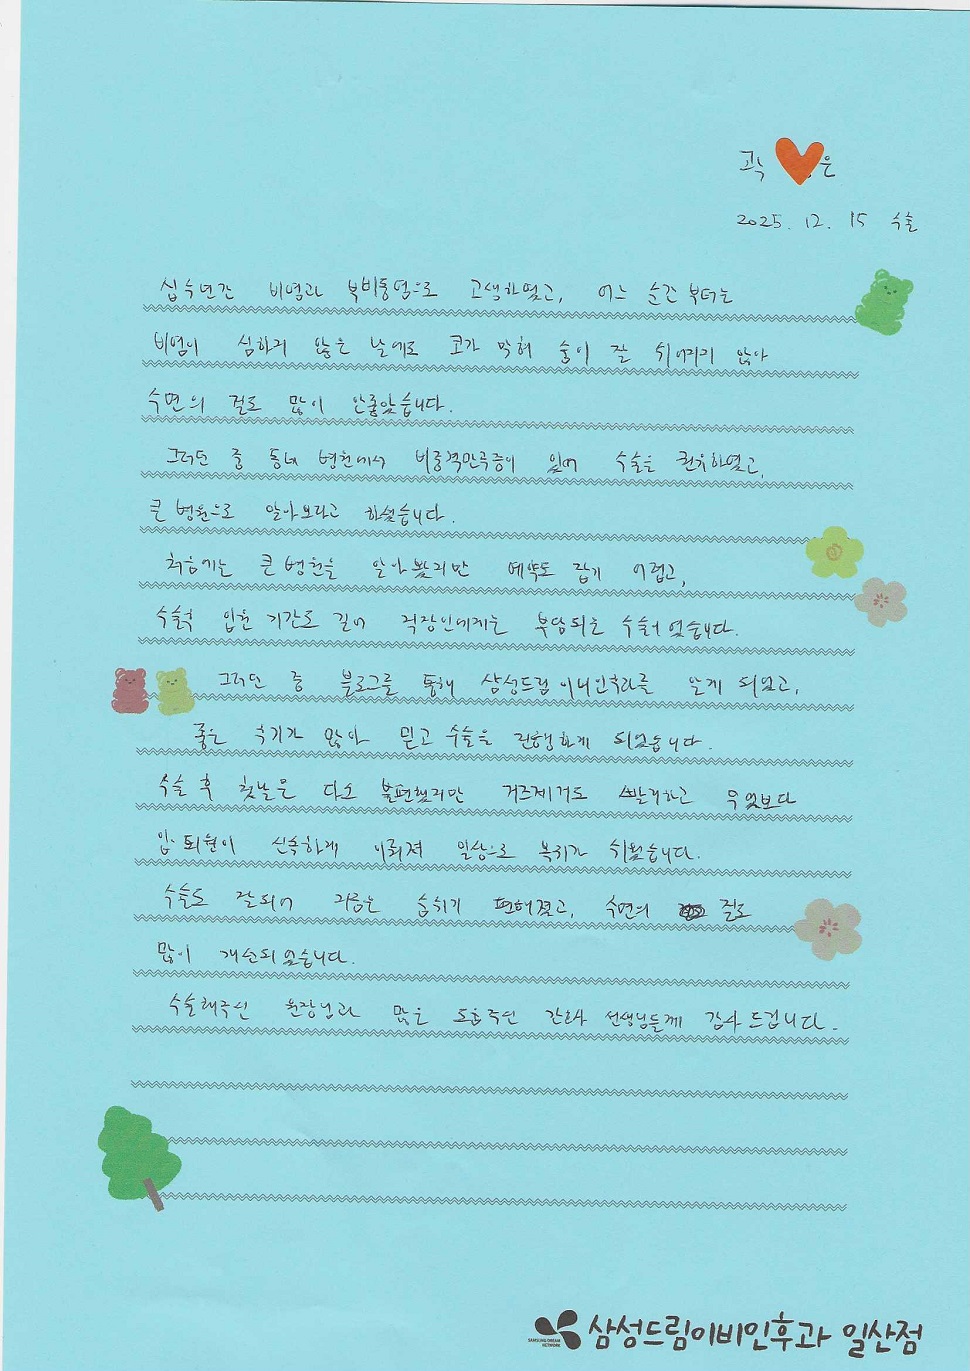 곽 은
2025. 12. 15 수술
십수년간 비염과 부비동염으로 고생하였고, 어느 순간부터는
비염이 심하지 않은 날에도 코가 막혀 숨이 잘 쉬어지지 않아
수면의 질도 많이 안좋았습니다.
그러던 중 동네 병원에서 비중격만곡증이 있어 수술을 권유하였고,
큰 병원으로 알아보라고 하셨습니다.
처음에는 큰 병원을 알아봤지만 예약도 잡기 어렵고,
수술적 입원 기간도 길어 직장인에게는 부담되는 수술이었습니다.
그러던 중 블로그를 통해 삼성드림이비인후과를 알게 되었고,
좋은 후기가 많아 믿고 수술을 진행하게 되었습니다.
수술 후 첫날은 다소 불편했지만 거즈제거도 빨리하고 무엇보다
입·퇴원이 신속하게 이뤄져 일상으로 복귀가 쉬웠습니다.
수술도 잘되어 지금은 숨쉬기 편해졌고, 수면의 질도
많이 개선되었습니다.
수술해주신 원장님과 많은 도움주신 간호사 선생님들께 감사드립니다.
SAMSUNG DREAM
NETWORK
삼성드림이비인후과 일산점